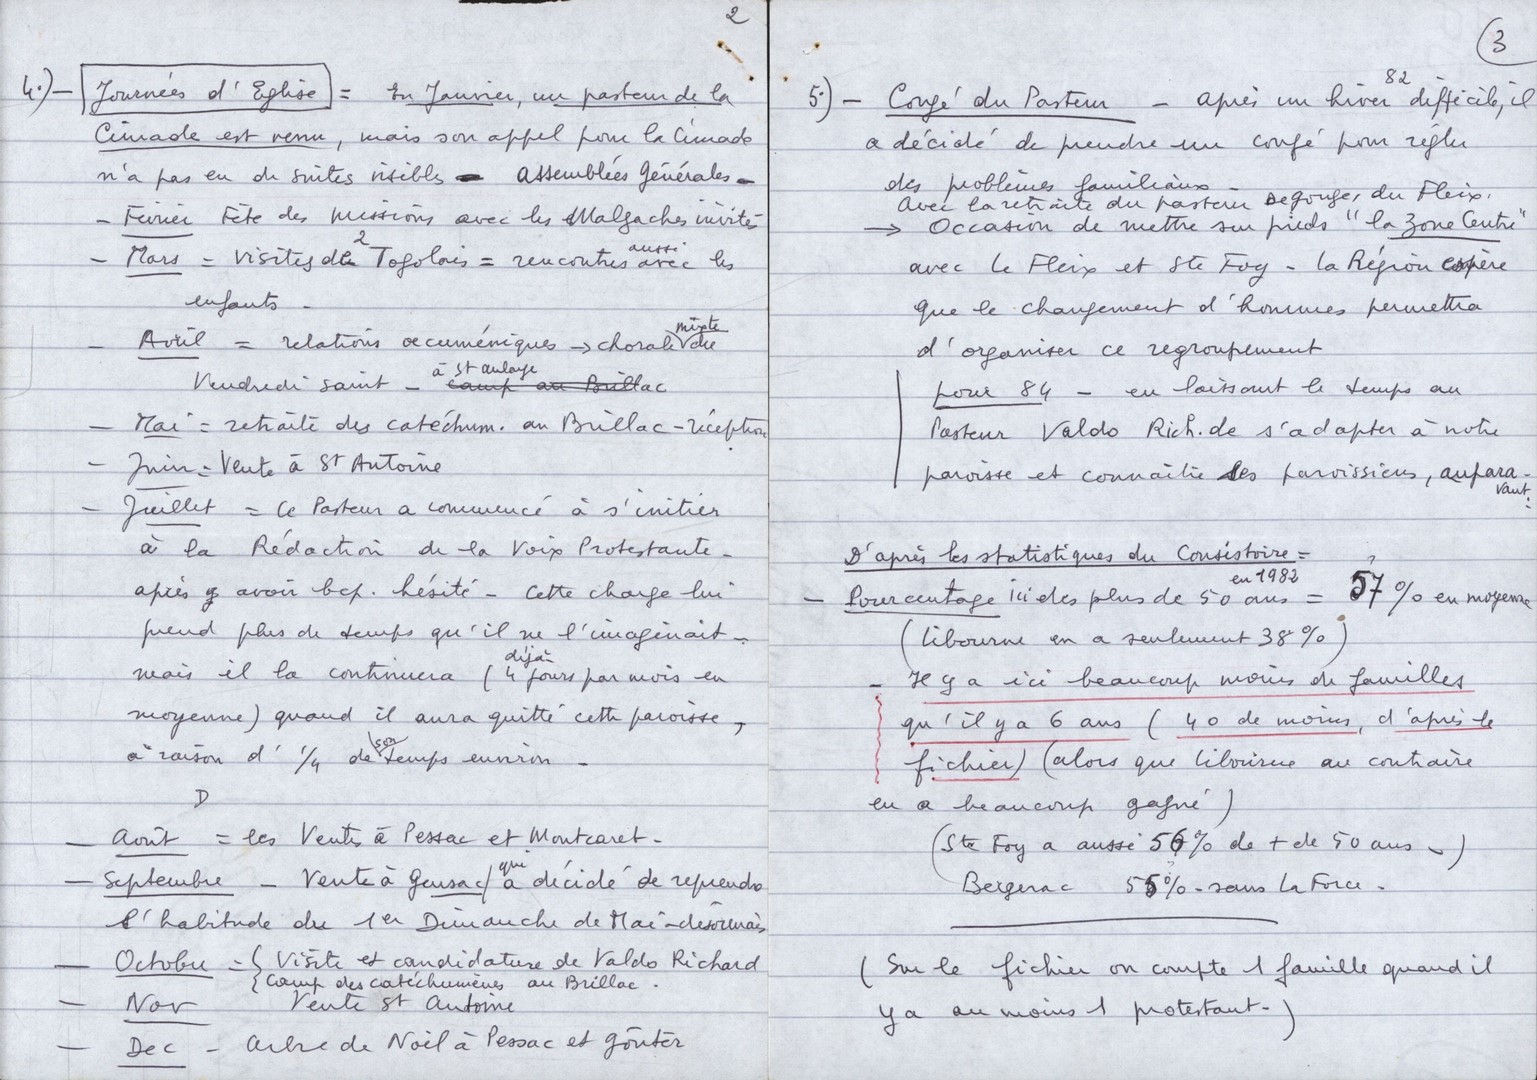 2
4.) - Journées d'Eglise = En Janvier, un pasteur de la
Cimade est venu, mais son appel pour la Cimade
n'a pas eu de suites visibles - Assemblées Générales -
- Février Fête des Missions avec les Malgaches invités
- Mars = Visites de 2 Togolais = rencontres aussi avec les
enfants -
- Avril = relations œcuméniques → chorale mixte du
Vendredi saint - à St Aulaye camp au Brillac
- Mai = retraite des catéchum. au Brillac - réception
- Juin = Vente à St Antoine
- Juillet = Ce Pasteur a commencé à s'initier
à la Rédaction de la Voix Protestante -
après y avoir bcp. hésité - Cette charge lui
prend plus de temps qu'il ne l'imaginait -
mais il la continuera (déjà 4 jours par mois en
moyenne) quand il aura quitté cette paroisse,
à raison d' 1/4 de son temps environ -
D
- Août = les Ventes à Pessac et Montcaret -
- Septembre - Vente à Gensac / qui a décidé de reprendre
l'habitude du 1er Dimanche de Mai - désormais
- Octobre = { Visite et candidature de Valdo Richard
{ Camp des catéchumènes au Brillac.
- Nov Vente St Antoine
- Dec - Arbre de Noël à Pessac et goûter
3
5.) - Congé du Pasteur - après un hiver 82 difficile, il
a décidé de prendre un congé pour régler
des problèmes familiaux -
Avec la retraite du pasteur Degouges, du Fleix.
→ Occasion de mettre sur pieds "la Zone Centre"
avec le Fleix et Ste Foy - la Région espère
que le changement d'hommes permettra
d'organiser ce regroupement
pour 84 - en laissant le temps au
Pasteur Valdo Rich. de s'adapter à notre
paroisse et connaître les paroissiens, aupara-
vant.
D'après les statistiques du Consistoire =
- Pourcentage ici des plus de 50 ans en 1982 = 57 ? % en moyenne
(Libourne en a seulement 38%)
- Il y a ici beaucoup moins de familles
qu'il y a 6 ans (40 de moins, d'après le
fichier) (alors que Libourne au contraire
en a beaucoup gagné)
(Ste Foy a aussi 56% de + de 50 ans -)
Bergerac 55% - sans La Force -
(Sur le fichier on compte 1 famille quand il
y a au moins 1 protestant -)